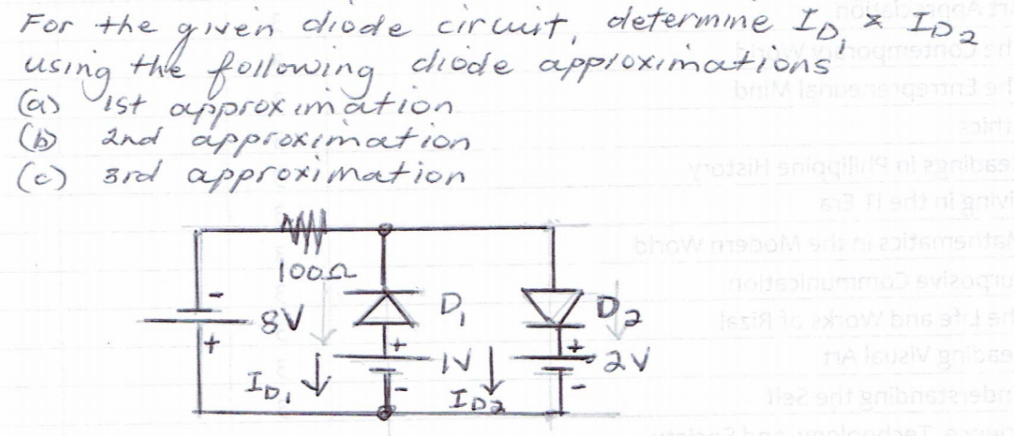 For the given diode circuit, determine ID1 & ID2
using the following diode approximations
(a) 1st approximation
(b) 2nd approximation
(c) 3rd approximation
100Ω
-
8V
+
D1
+
1V
-
ID1
D2
+
2V
-
ID2
Art Appreciation
The Contemporary World
The Entrepreneurial Mind
Ethics
Readings in Philippine History
Living in the IT Era
Mathematics in the Modern World
Purposive Communication
The Life and Works of Rizal
Reading Visual Art
Understanding the Self
Science, Technology and Society